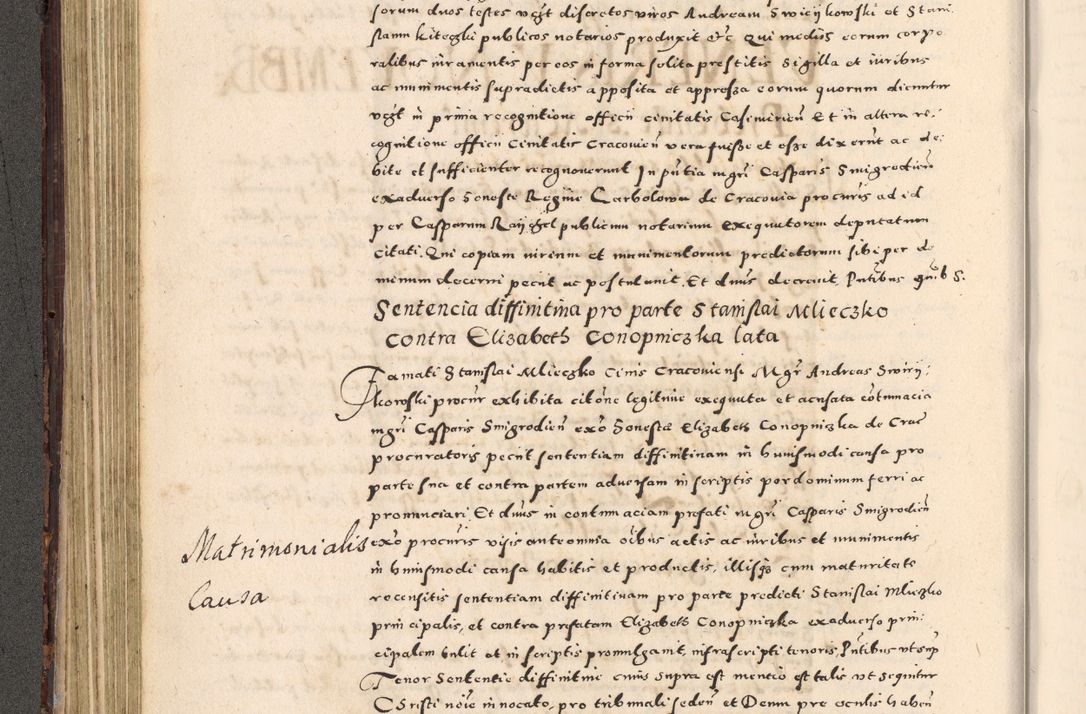 sorum duos testes vczt discretos viros Andream Swieykowski et Stani
slaum Kiteczki publicos notarios produxit etc Qui mediis eorum corpo
ralibus iuramentis per eos in forma solita prestitis Sigilla et iuribus
ac munimentis supradictis apposita et appressa eorum quorum dicuntur
vczt in prima recognitione officii civitatis Casimirien Et in altera re
cognitione officii Civitatis Cracovien vera fuisse et esse dixerunt ac de
bite et sufficienter recognoverunt In putia mgri Casparis Smigrodien
exadverso honeste Regine Garbolowa de Cracovia procuris ad id
per Casparum publicum notarium exequutorem deputatum
citati. Qui copiam iurium et munimentorum predictorum sibi per do
minum decerni petiit ac postulavit. Et dnus decrevit Putibus quib S.
Sentencia diffinitiva pro parte Stanislai Mlieczko
contra Elizabeth Conopniczka lata
Famati Stanislai Mlieczko Civis Cracoviensi Mgr Andreas Swiey
kowski procur exhibita citone legitime exequuta et acusata cotumacia
mgri Casparis Smigrodien exo honeste Elizabeth Conopniczka de Crac
procuratoris petiit sententiam diffinitivam in huiusmodi causa pro
parte sua et contra partem adversam in scriptis per dominum ferri ac
pronunciari Et dnus in contumaciam prefati mgri Casparis Smigrodien
Matrimonialis exo procuris visis ante omnia oibus actis ac iuribus et munimentis
in huiusmodi causa habitis et productis, illisqs cum maturitate
Causa recensitis sententiam diffinitivam pro parte predicti Stanislai Mlieczko
principalis, et contra prefatam Elizabeth Conopniczka exadverso prin
cipalem tulit et in scriptis promulgavit, infrascripti tenoris, Putibus vt sup
Tenor Sententie diffinitive cuius supra est mentio est talis vt sequitur
Christi noie invocato, pro tribunali seden et Deum pre oculis haben